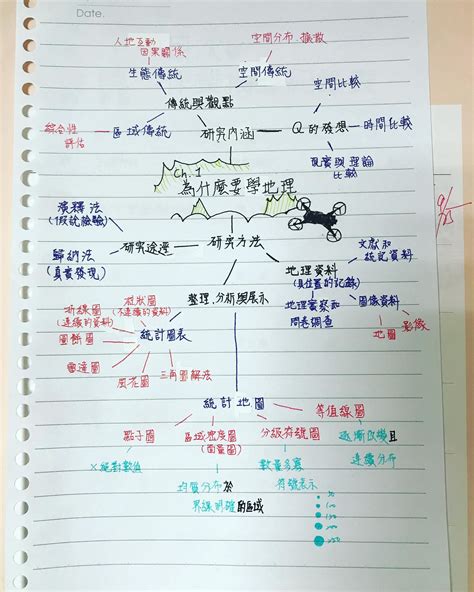 Date.
人地互動
因果關係
空間分布、擴散
生態傳統
空間傳統
空間比較
傳統與觀點
綜合性
評估
區域傳統
研究內涵
Q的發想
時間比較
現實與理論
比較
Ch.1
為什麼要學地理
演繹法
(假說驗證)
歸納法
(真實發現)
研究途逕
研究方法
文獻和
統記資料
地理資料
(具位置的記錄)
地理實察和
問卷調查
圖像資料
地圖
影像
整理、分析與展示
折線圖
(連續的資料)
柱狀圖
(不連續的資料)
圓餅圖
統計圖表
雷達圖
風花圖
三角圖解法
統計地圖
點子圖
區域密度圖
(面量圖)
分級符號圖
等值線圖
逐漸改變且
連續分布
x絕對數值
數量多寡
符號表示
均質分布於
界線明確的區域
50
100
150
200
250
9/23